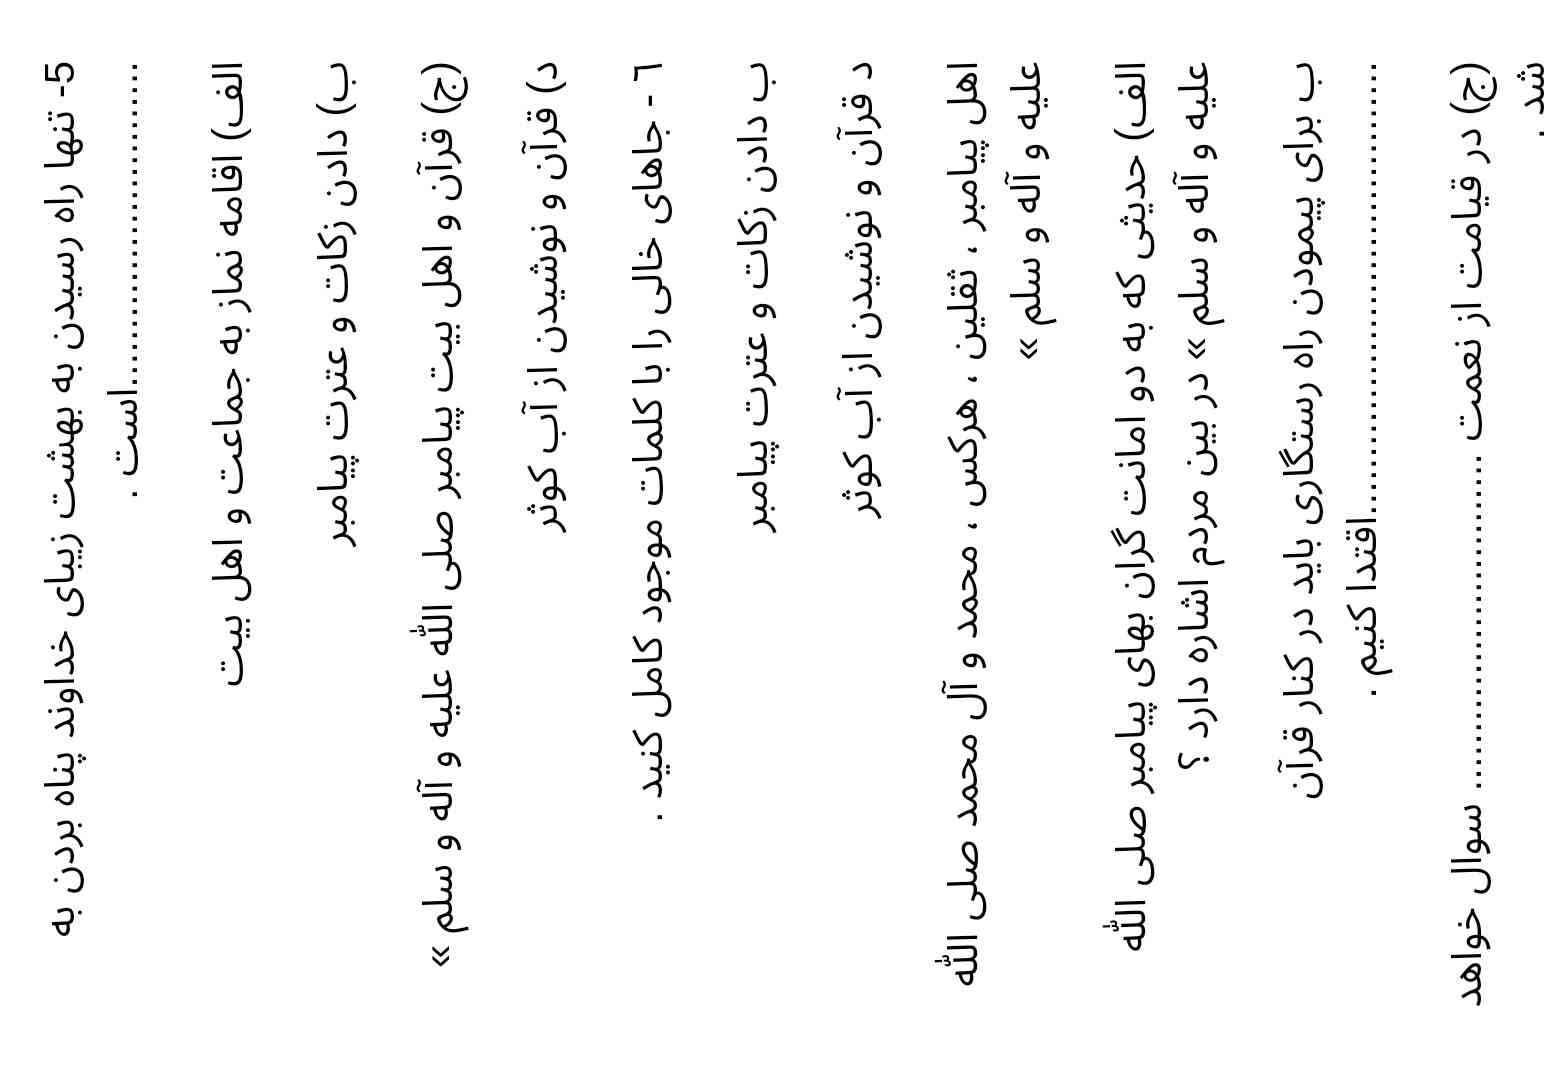 5- تنها راه رسیدن به بهشت زیبای خداوند پناه بردن به
................................است .
الف) اقامه نماز به جماعت و اهل بیت
ب) دادن زکات و عترت پیامبر
ج) قرآن و اهل بیت پیامبر صلی الله علیه و آله و سلم »
د) قرآن و نوشیدن از آب کوثر
٦ - جاهای خالی را با کلمات موجود کامل کنید .
ب دادن زکات و عترت پیامبر
د قرآن و نوشیدن از آب کوثر
اهل پیامبر ، ثقلین ، هرکس ، محمد و آل محمد صلی الله
علیه و آله و سلم »
الف) حدیثی که به دو امانت گران بهای پیامبر صلی الله
علیه و آله و سلم » در بین مردم اشاره دارد ؟
ب برای پیمودن راه رستگاری باید در کنار قرآن
.............................................اقتدا کنیم .
ج) در قیامت از نعمت ................................. سوال خواهد
شد .